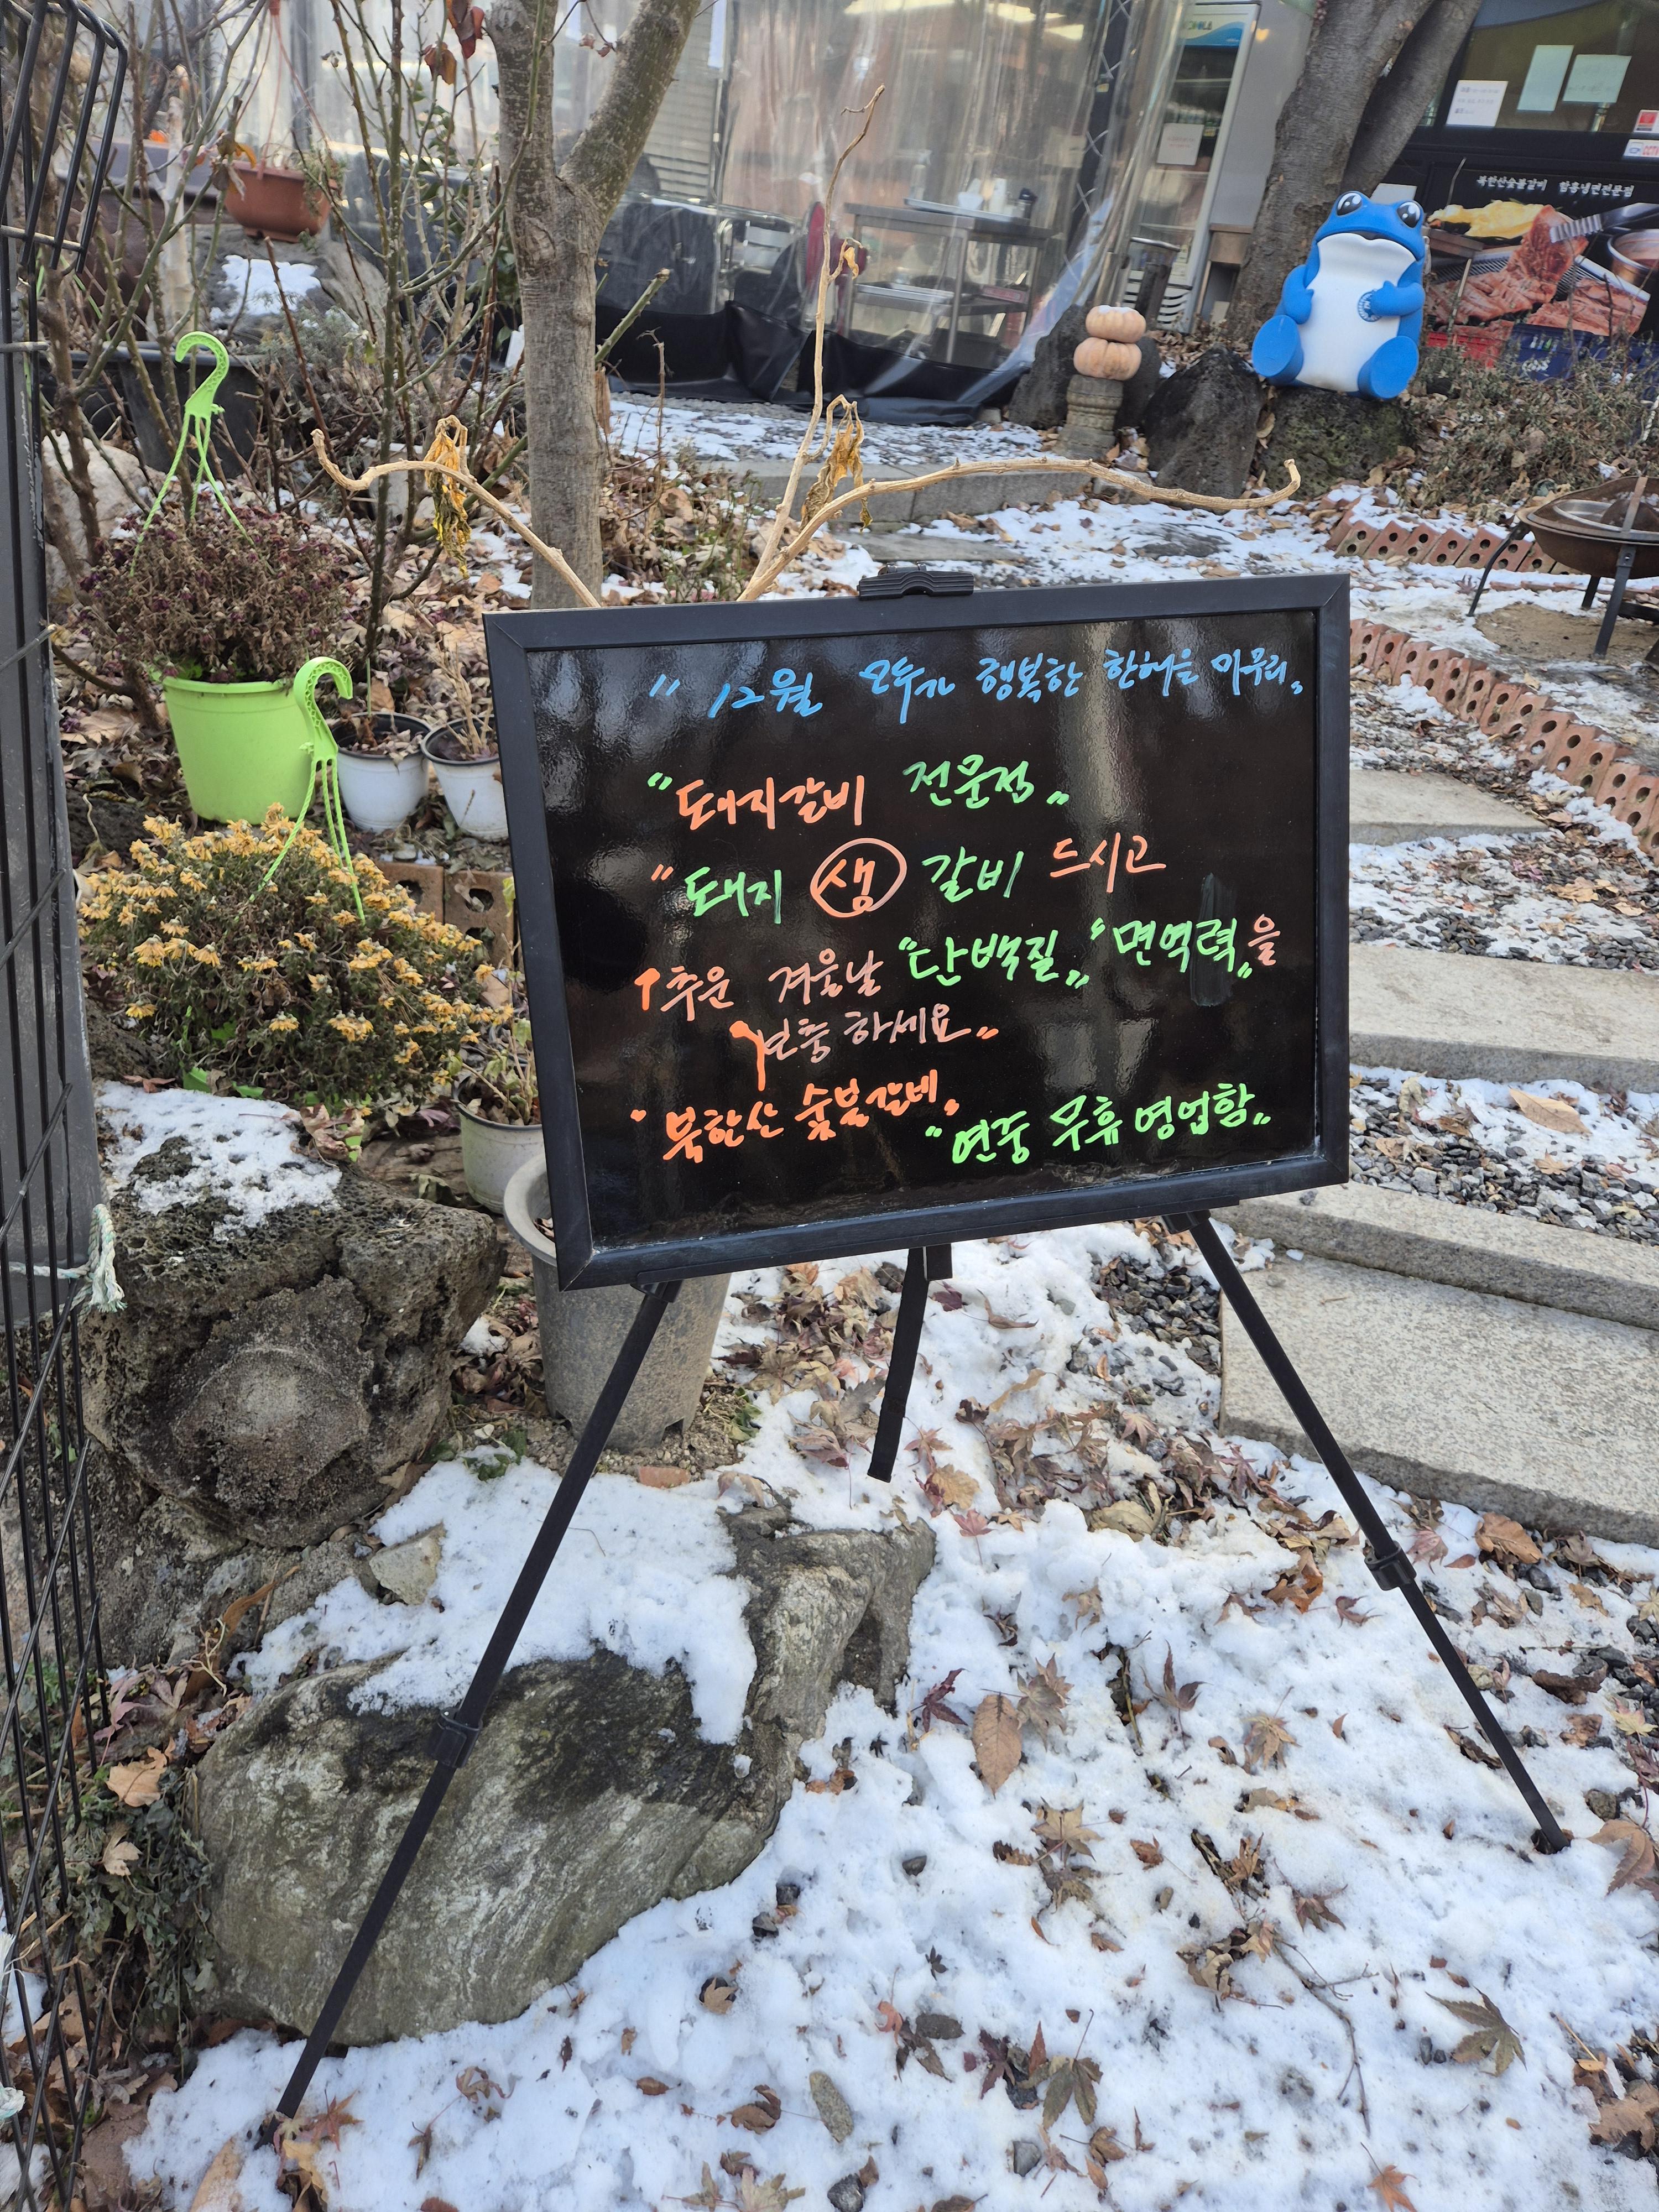 북한산숯불갈비 함흥냉면전문점
" 12월 모두가 행복한 한해을 마무리"
"돼지갈비 전문점"
"돼지 샘 갈비 드시고
추운 겨울날 "단백질" "면역력"을
보충 하세요"
"북한산 숯불갈비"
"연중 무휴 영업함"